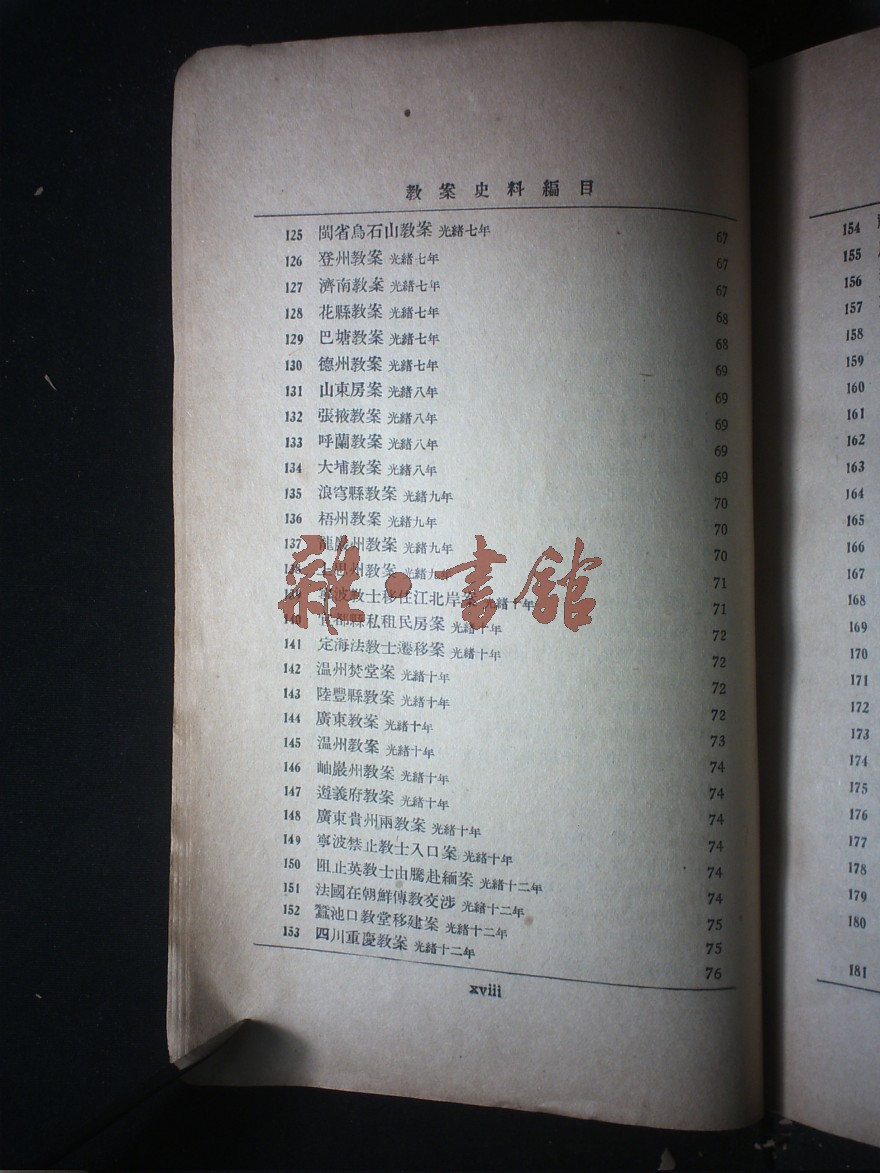 教案史料編目
125 閩省烏石山教案 光緒七年 67
126 登州教案 光緒七年 67
127 濟南教案 光緒七年 67
128 花縣教案 光緒七年 68
129 巴塘教案 光緒七年 68
130 德州教案 光緒七年 69
131 山東房案 光緒八年 69
132 張掖教案 光緒八年 69
133 呼蘭教案 光緒八年 69
134 大埔教案 光緒八年 69
135 浪穹縣教案 光緒九年 70
136 梧州教案 光緒九年 70
137 龍巖州教案 光緒九年 70
138 上思州教案 光緒九年 71
139 寧波教士移住江北岸案 光緒十年 71
140 都縣私租民房案 光緒十年 72
141 定海法教士遷移案 光緒十年 72
142 温州焚堂案 光緒十年 72
143 陸豐縣教案 光緒十年 72
144 廣東教案 光緒十年 73
145 温州教案 光緒十年 74
146 岫巖州教案 光緒十年 74
147 遵義府教案 光緒十年 74
148 廣東貴州兩教案 光緒十年 74
149 寧波禁止教士入口案 光緒十年 74
150 阻止英教士由騰赴緬案 光緒十二年 74
151 法國在朝鮮傳教交涉 光緒十二年 75
152 蠶池口教堂移建案 光緒十二年 75
153 四川重慶教案 光緒十二年 76
xviii
雜·書館
154
155
156
157
158
159
160
161
162
163
164
165
166
167
168
169
170
171
172
173
174
175
176
177
178
179
180
181